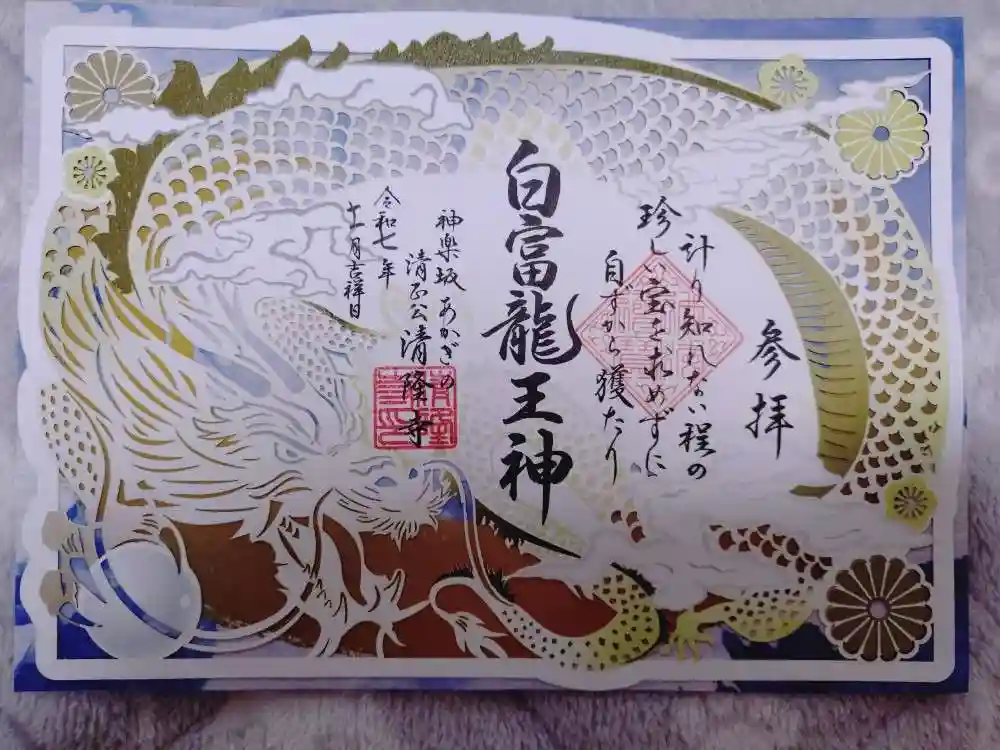 参拝
計り知れない程の
珍しい宝を求めずに
自ずから獲たり
白富龍王神
神楽坂あかぎの
清正公清隆寺
令和七年
十一月吉祥日